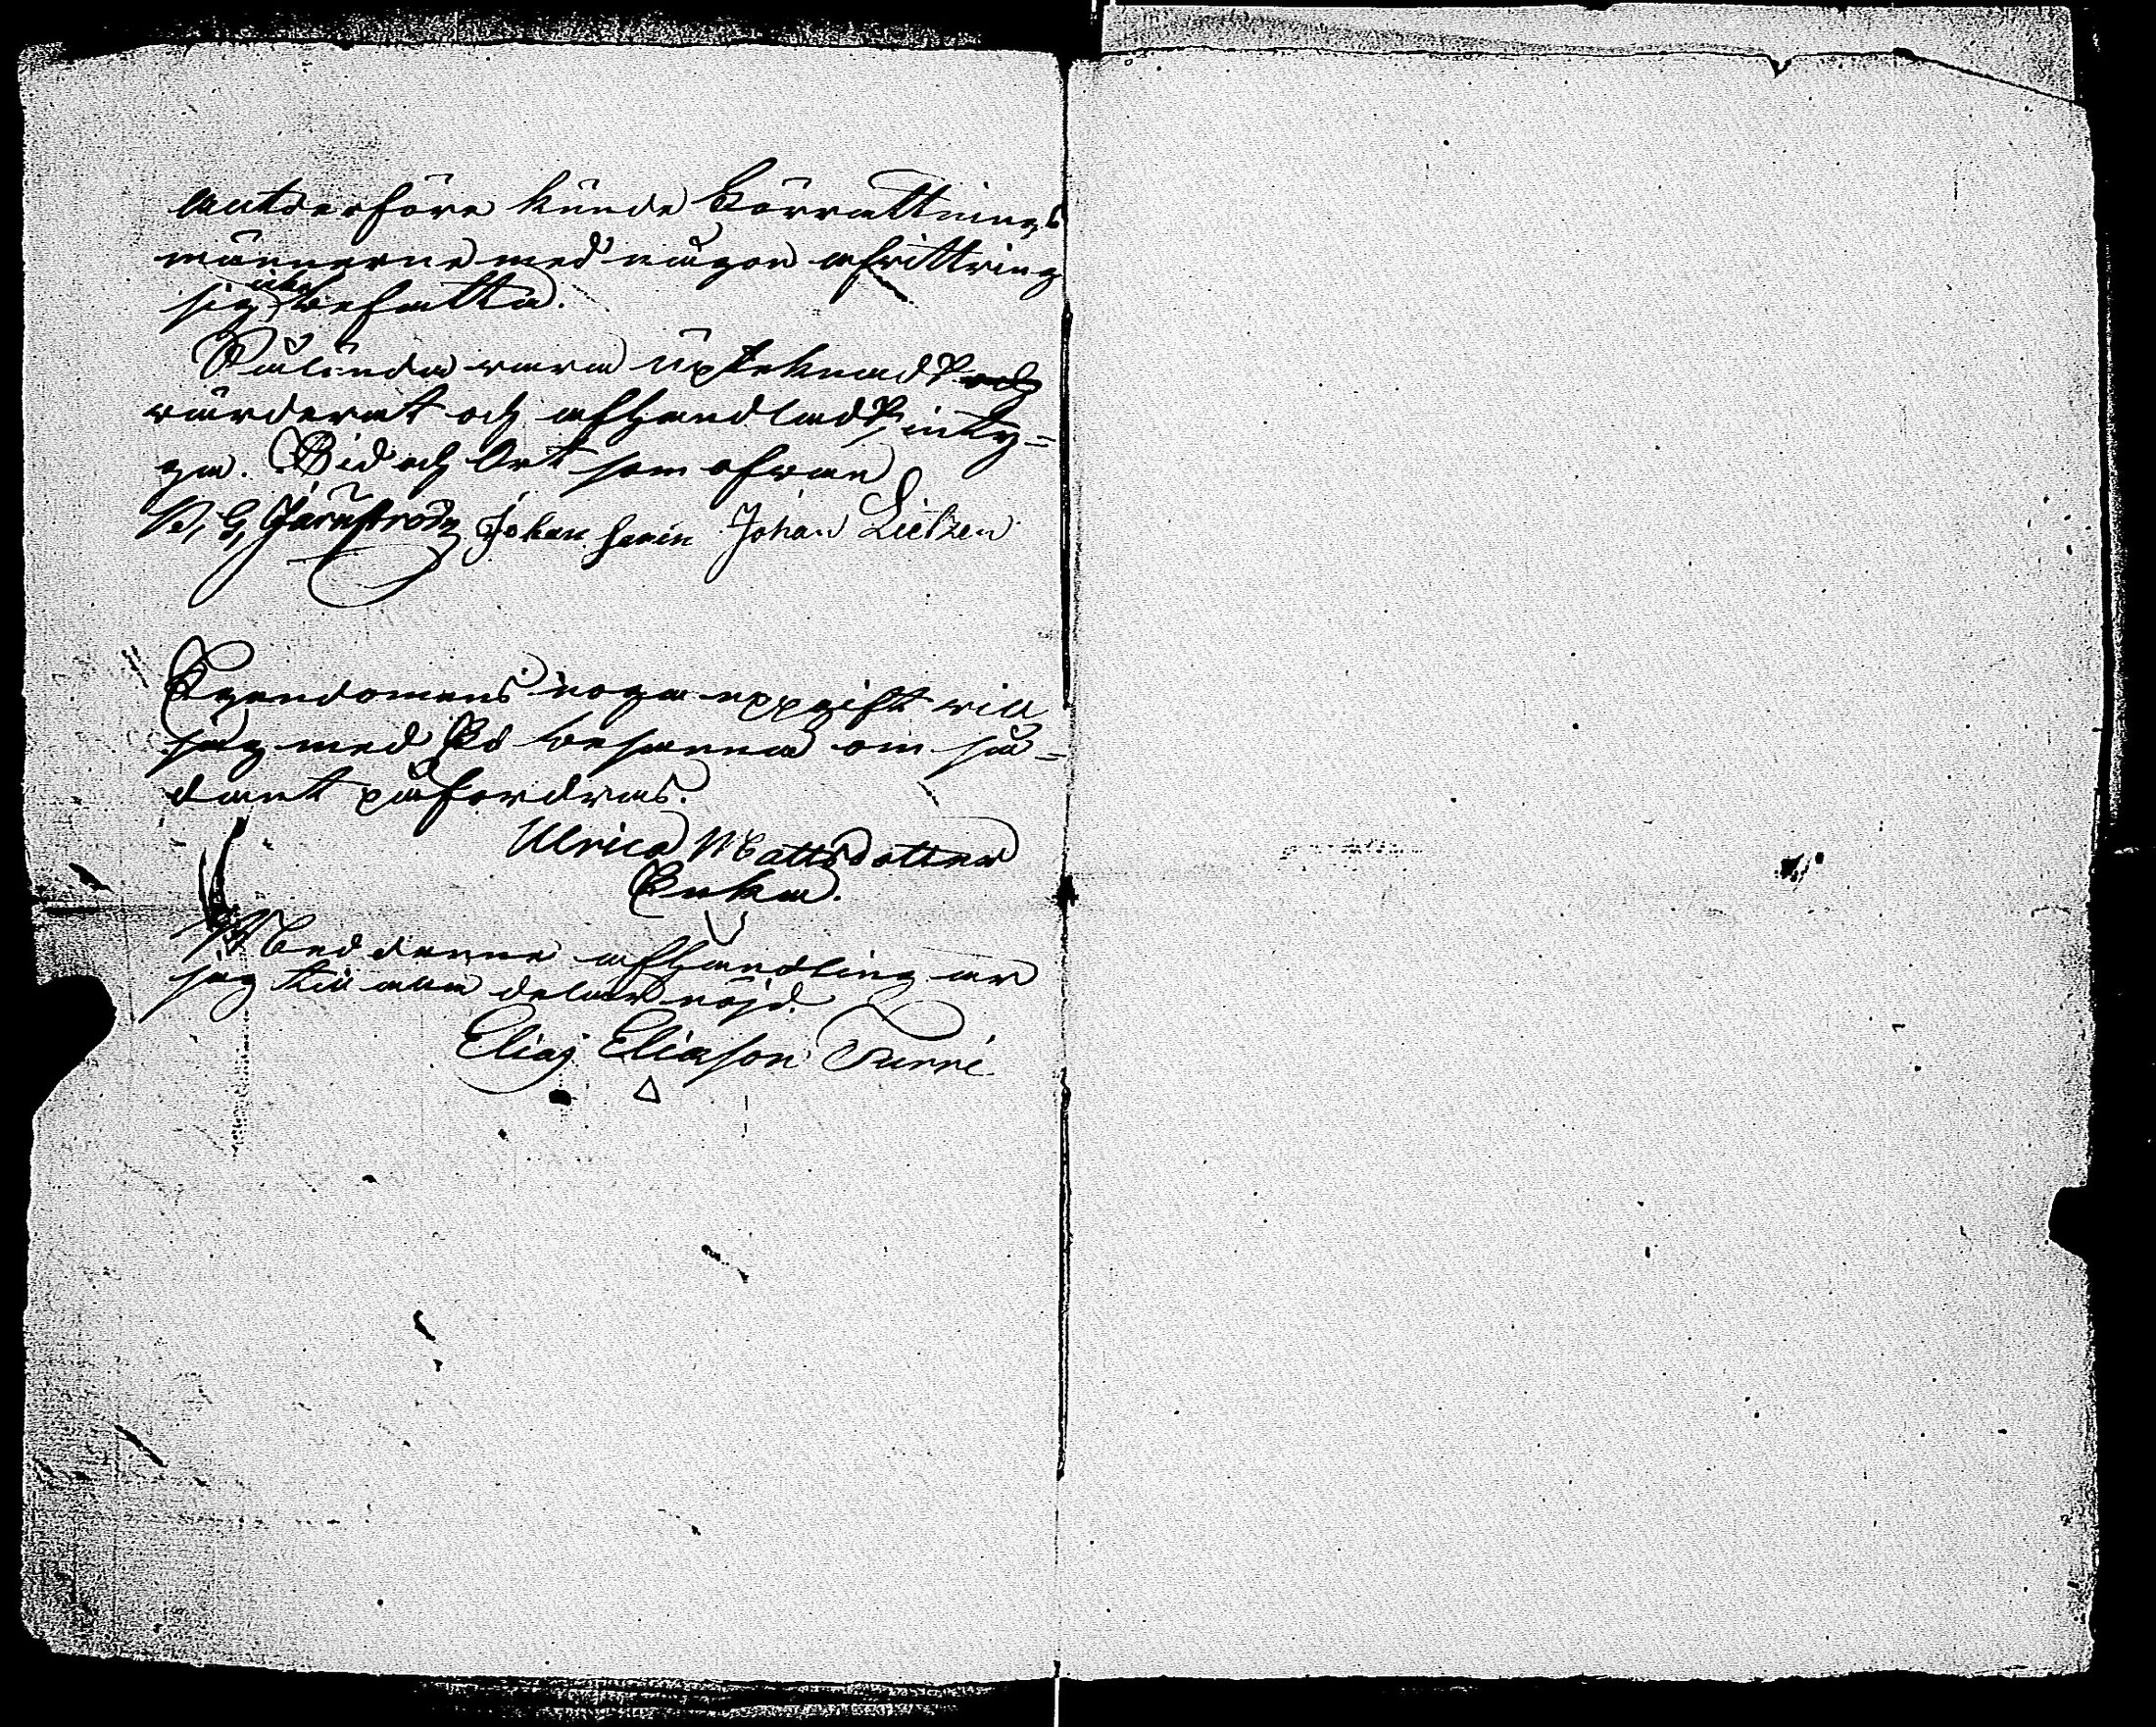 hvarföre kunde Förrättnings
männerne med någon afvittring
sig icke befatta.
Sålunda vara upteknadt och
värderat och afhandladt, inty=
ga. Tid och Ort som ofvan
Johan Johan Lietzen
Egendomens noga uppgift vill
jag med Ed besanna om så=
dant påfordras.
Ulrica Mattsdotter
Enka.
Med denna afhandling är
jag till alla delar nöjd.
Elias Eliasson Turri